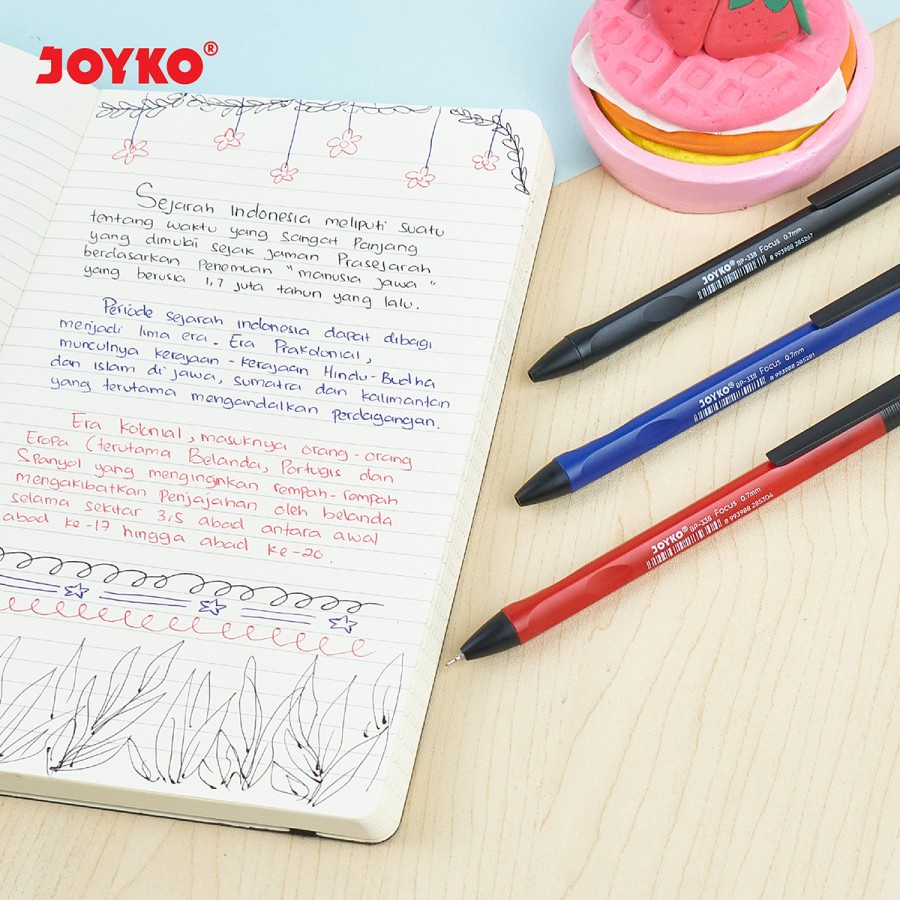 JOYKO®
Sejarah Indonesia meliputi suatu
tentang waktu yang sangat Panjang
yang dimulai sejak jaman Prasejarah
berdasarkan Penemuan "manusia jawa"
yang berusia 1,7 juta tahun yang lalu.
Periode sejarah indonesia dapat dibagi
menjadi lima era. Era Prakolonial,
munculnya kerajaan-kerajaan Hindu-Budha
dan islam di jawa, sumatra dan kalimantan
yang terutama mengandalkan perdagangan.
Era Kolonial, masuknya orang-orang
Eropa (terutama Belanda, Portugis dan
Spanyol yang menginginkan rempah-rempah
mengakibatkan penjajahan oleh belanda
selama sekitar 3,5 abad antara awal
abad ke-17 hingga abad ke-20.
JOYKO® BP-338 Focus 0.7mm
8 993988 285267
JOYKO® BP-338 Focus 0.7mm
8 993988 285281
JOYKO® BP-338 Focus 0.7mm
8 993988 285304